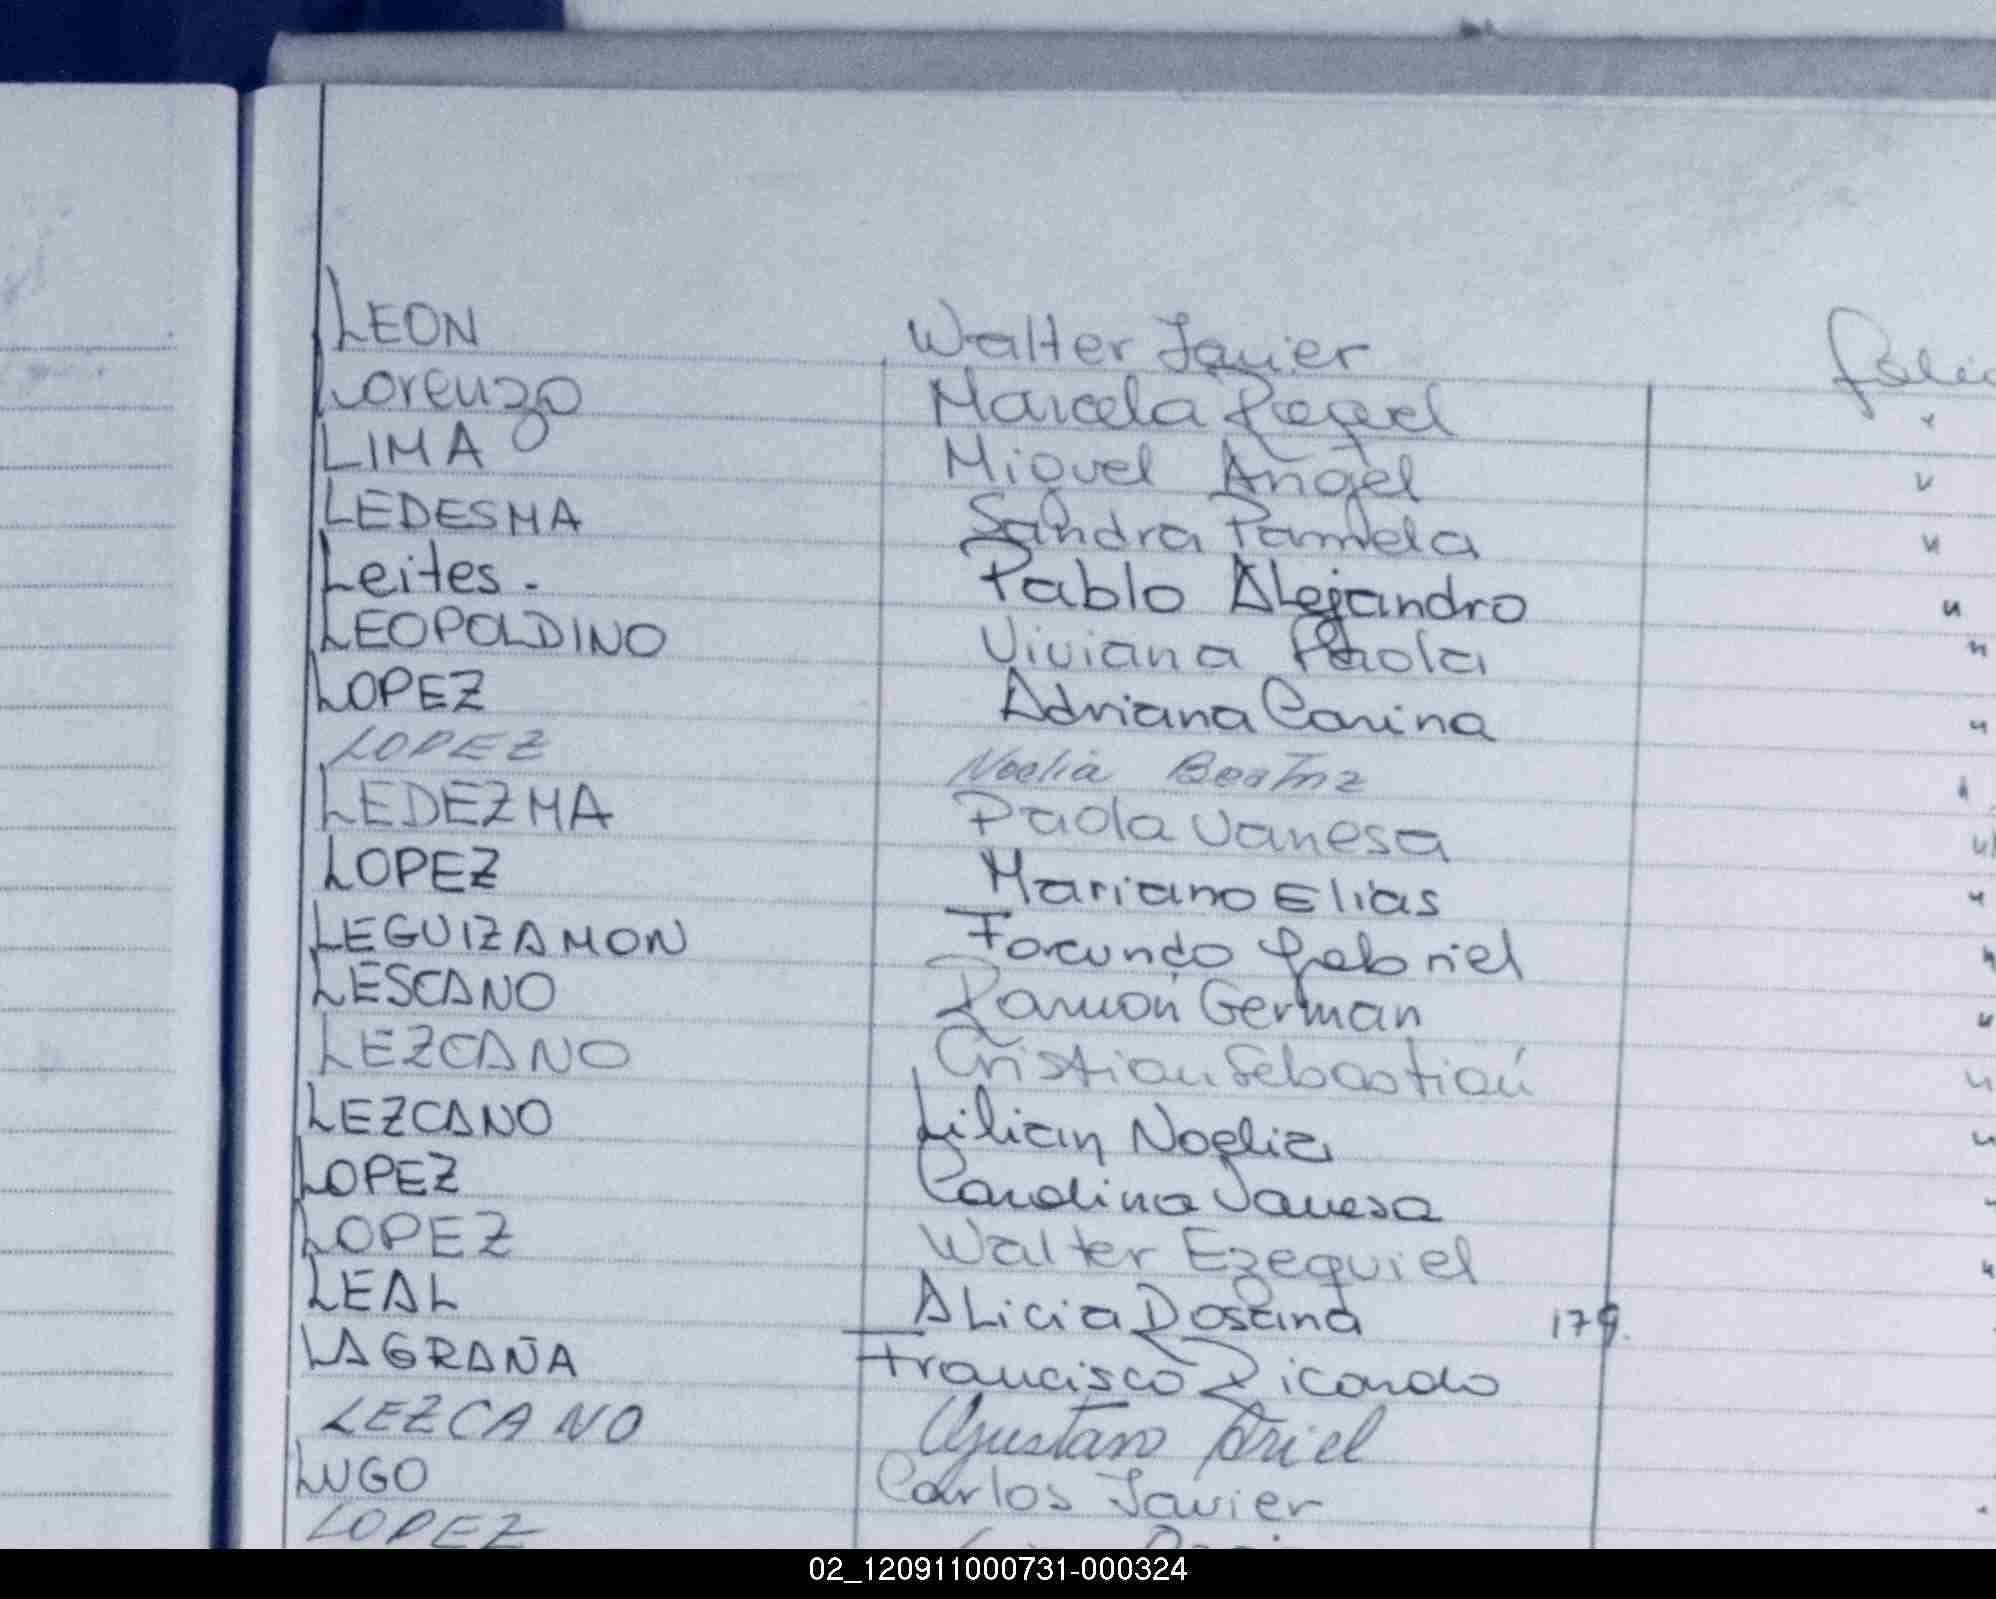 LEON Walter Javier folio
Lorenzo Marcela Raquel "
LIMA Miguel Angel "
LEDESMA Sandra Pamela "
Leites. Pablo Alejandro "
LEOPOLDINO Viviana Paola "
LOPEZ Adriana Carina "
LOPEZ Noelia Beatriz "
LEDEZMA Paola Vanesa "
LOPEZ Mariano Elias "
LEGUIZAMON Facundo Gabriel "
LESCANO Ramón German "
LEZCANO Cristian Sebastian "
LEZCANO Lilian Noelia "
LOPEZ Carolina Vanesa
LOPEZ Walter Ezequiel "
LEAL ALicia Rosana 179.
LAGRAÑA Francisco Ricardo
LEZCANO Gustavo Ariel
LUGO Carlos Javier
LOPEZ
02_120911000731-000324